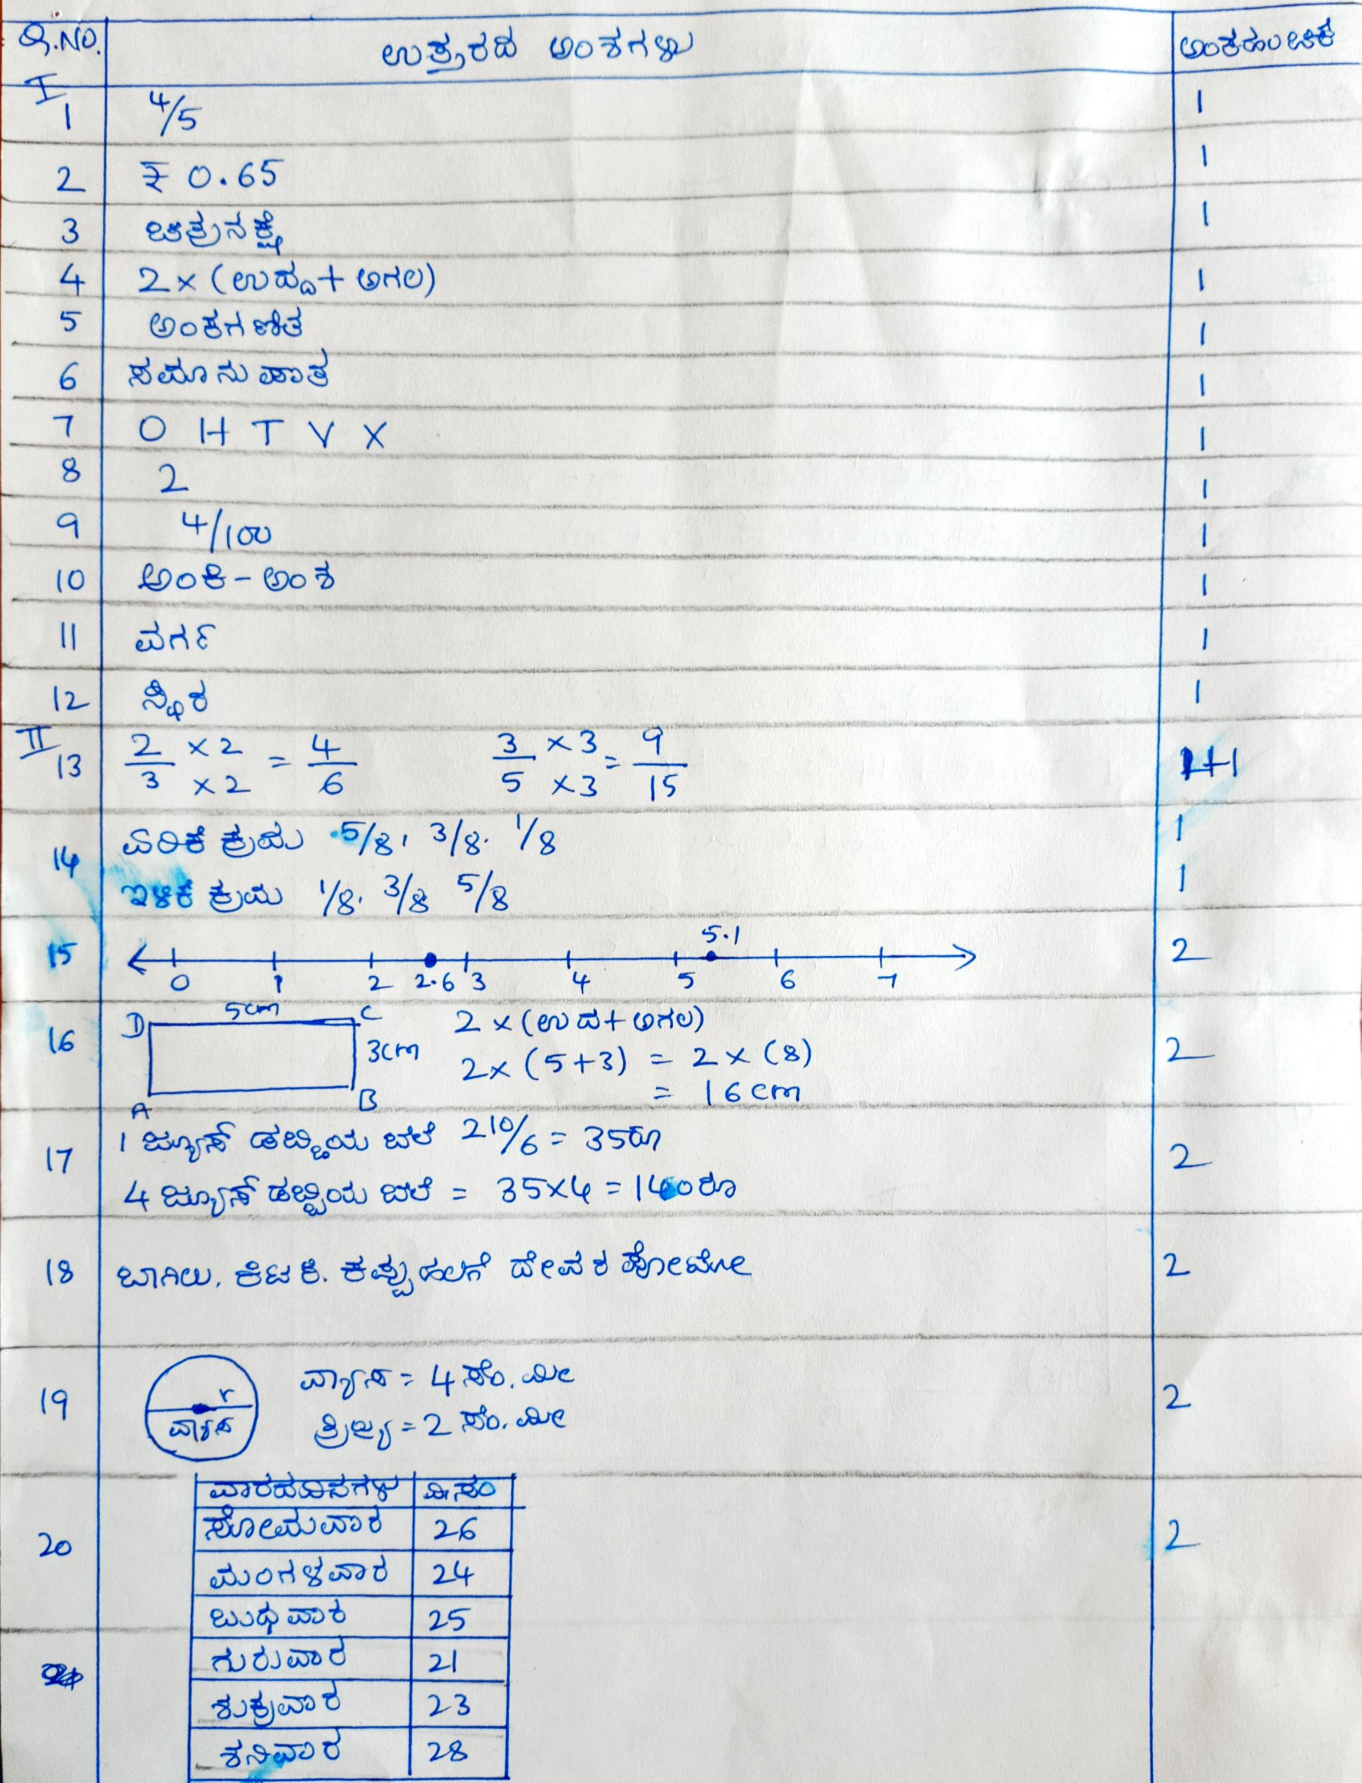 Q.NO. ಉತ್ತರದ ಅಂಶಗಳು ಅಂಕಹಂಚಿಕೆ
I
1 4/5 1
2 ₹ 0.65 1
3 ಚಿತ್ರನಕ್ಷೆ 1
4 2 × (ಉದ್ದ + ಅಗಲ) 1
5 ಅಂಕಗಣಿತ 1
6 ಸಮಾನುಪಾತ 1
7 O H T V X 1
8 2 1
9 4/100 1
10 ಅಂಕಿ - ಅಂಶ 1
11 ವರ್ಗ 1
12 ಸ್ಥಿರ 1
II
13 2/3 ×2/×2 = 4/6 3/5 ×3/×3 = 9/15 1+1
14 ಏರಿಕೆ ಕ್ರಮ 5/8, 3/8. 1/8 1
ಇಳಿಕೆ ಕ್ರಮ 1/8. 3/8 5/8 1
15 0 1 2 2.6 3 4 5 5.1 6 7 2
16 D 5cm C 2 × (ಉದ + ಅಗಲ) 2
3cm 2 × (5+3) = 2 × (8)
A B = 16 cm
17 1 ಜ್ಯೂಸ್ ಡಬ್ಬಿಯ ಬೆಲೆ 210/6 = 35ರೂ 2
4 ಜ್ಯೂಸ್ ಡಬ್ಬಿಯ ಬೆಲೆ = 35×4 = 140ರೂ
18 ಬಾಗಿಲು. ಕಿಟಕಿ. ಕಪ್ಪುಹಲಗೆ ದೇವರ ಪೋಟೋ 2
19 r ವ್ಯಾಸ = 4 ಸೆಂ.ಮೀ 2
ವ್ಯಾಸ ತ್ರಿಜ್ಯ = 2 ಸೆಂ.ಮೀ
20 ವಾರದದಿನಗಳು 2
ಸೋಮವಾರ 26
ಮಂಗಳವಾರ 24
ಬುಧವಾರ 25
ಗುರುವಾರ 21
ಶುಕ್ರವಾರ 23
ಶನಿವಾರ 28